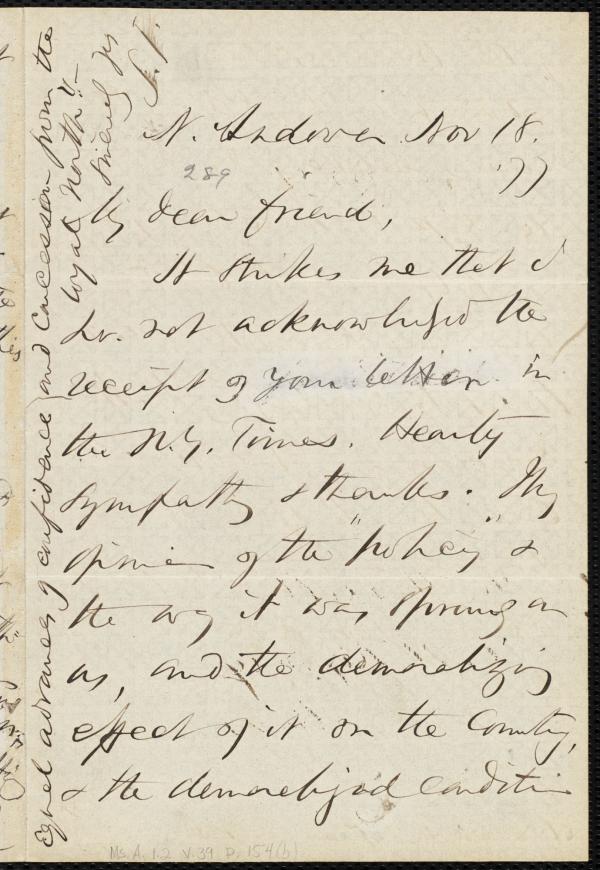 N. Andover Nov 18.
'77
289
My dear friend,
It strikes me that I
do not acknowledged the
receipt of your letter in
the N.Y. Times. Hearty
sympathy & thanks. My
opinion of the "policy" &
the way it was sprung on
us, and the demoralizing
effect of it on the Country,
& the demoralized condition
Equal advances of confidence and concession from the
loyal North"!—
Sincerely yrs
Ms. A. 1.2 V. 39 P. 154(b)